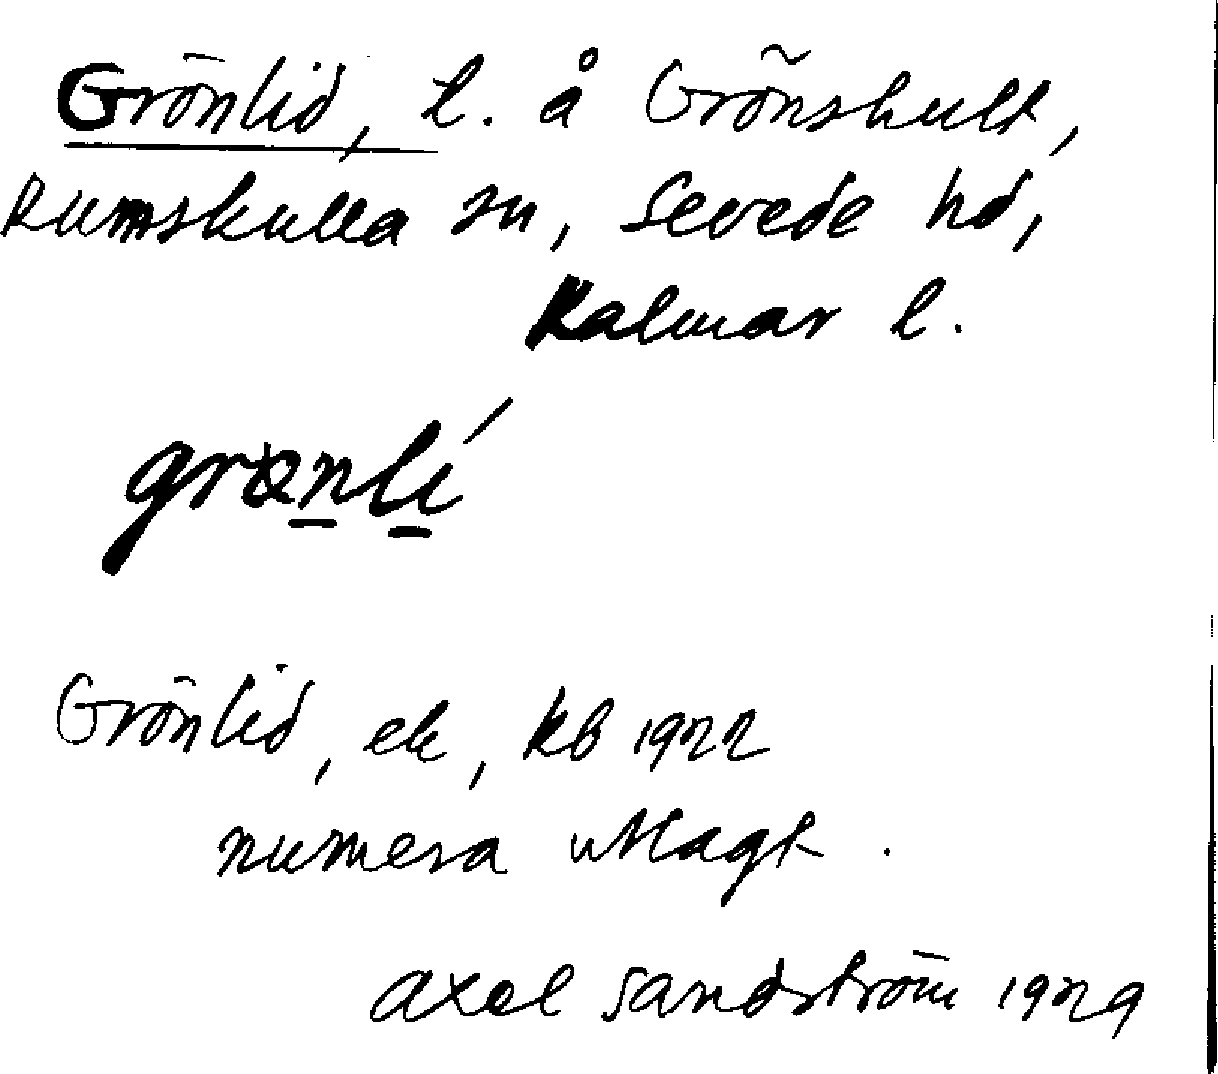 Grönlid, l. å Grönshult,
Rumskulla sn, Sevede hd,
Kalmar l.
grønli ́
Grönlid, ele, kb 1922
numera utlagt.
Axel Sandström 1929